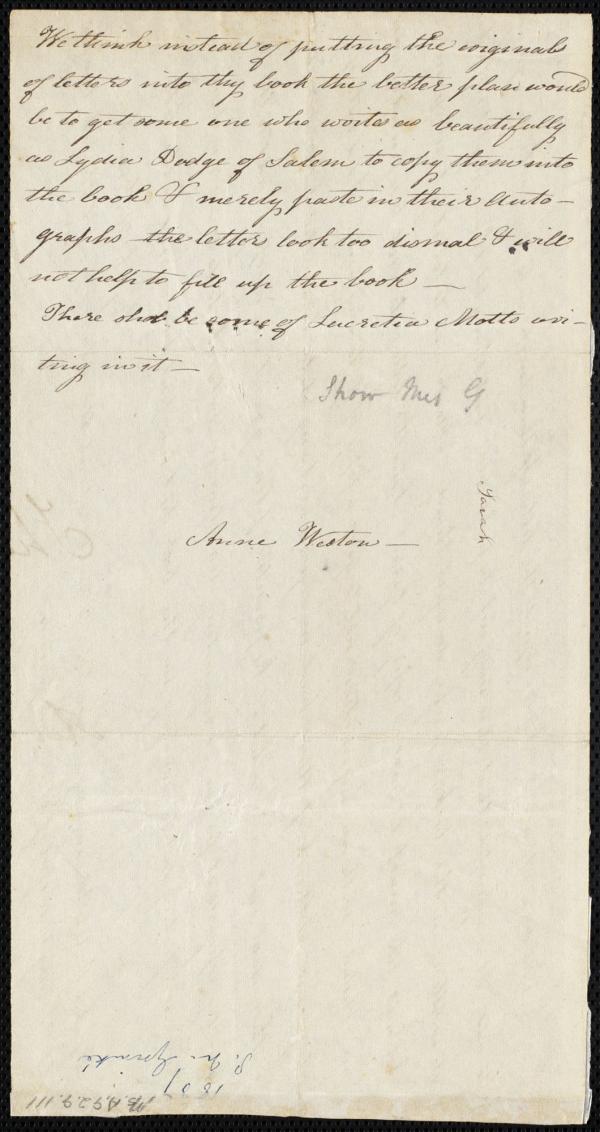 We think instead of putting the originals
of letters into thy book the better plan would
be to get some one who writes as beautifully
as Lydia Dodge of Salem to copy them into
the book & merely paste in their Auto-
graphs the letter look too dismal & will
not help to fill up the book —
There shd be some of Lucretia Motts wri-
ting in it —
Show Mrs G
Sarah
Anne Weston —
S. M. Grimké
1837
Ms.A.9.2.9.111